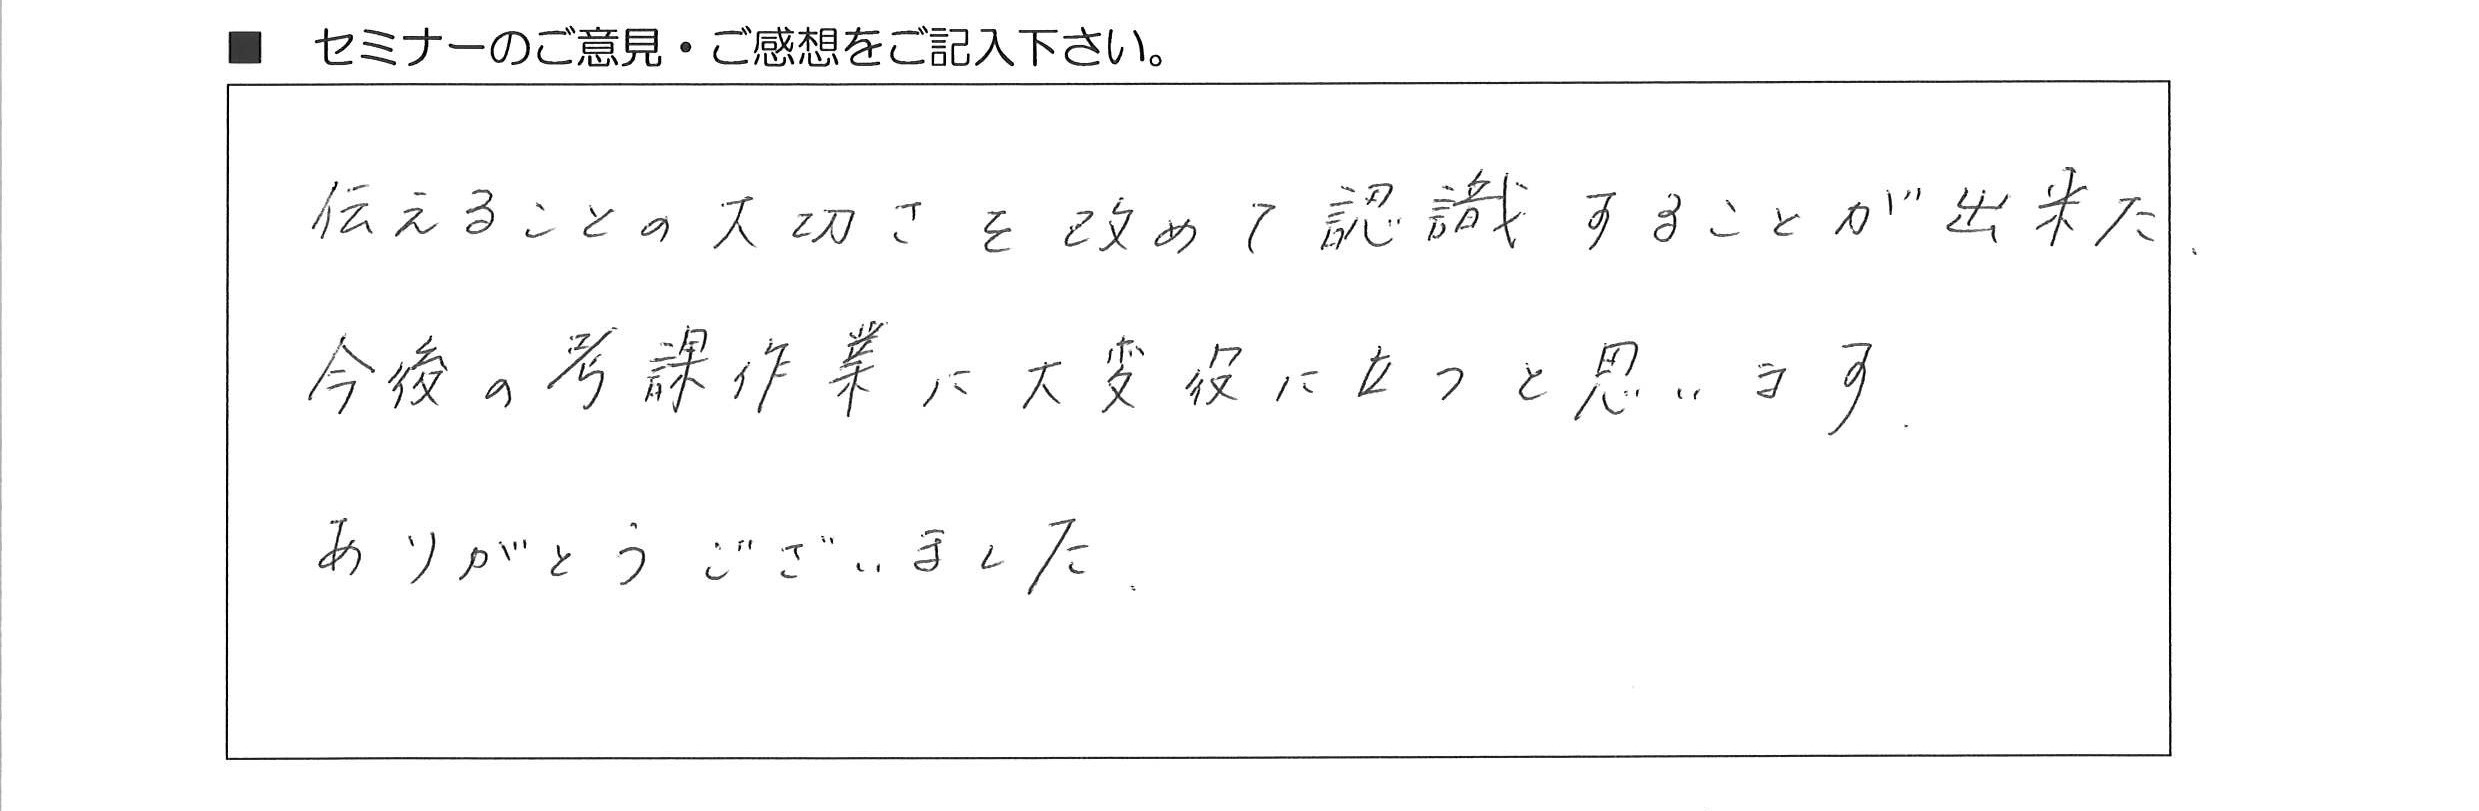 ■ セミナーのご意見・ご感想をご記入下さい。
伝えることの大切さを改めて認識することが出来た.
今後の考課作業に大変役に立つと思います.
ありがとうございました.